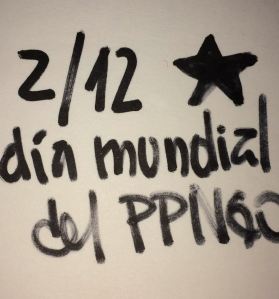 2/12 ★
día mundial
del PPNGO